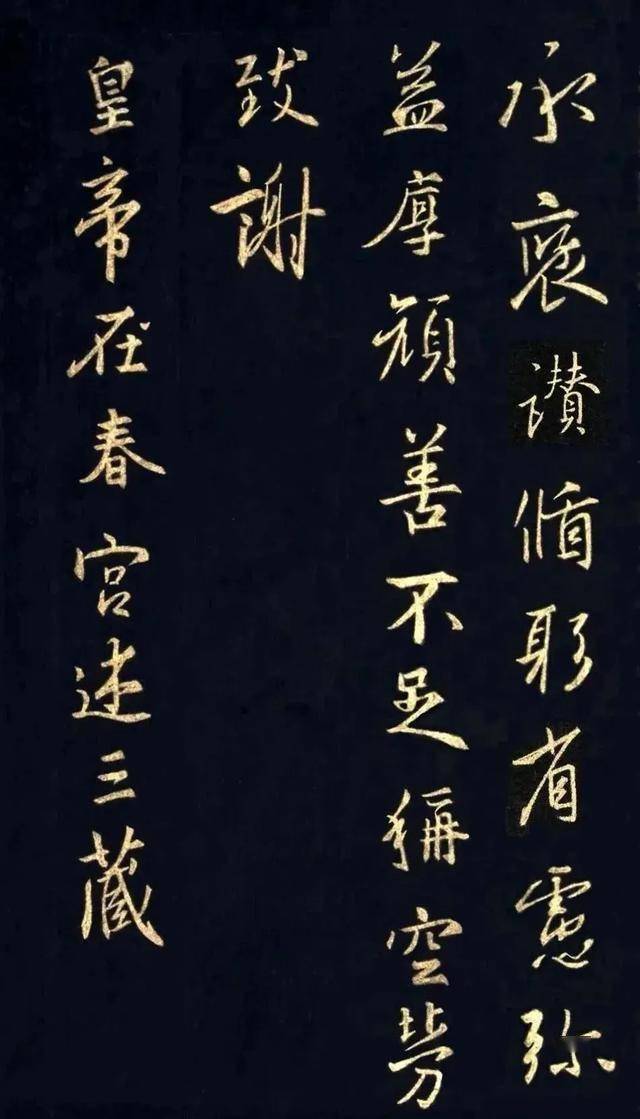 承褒讚循躬省慮弥
益厚顔善不足稱空勞
致謝
皇帝在春宮述三藏